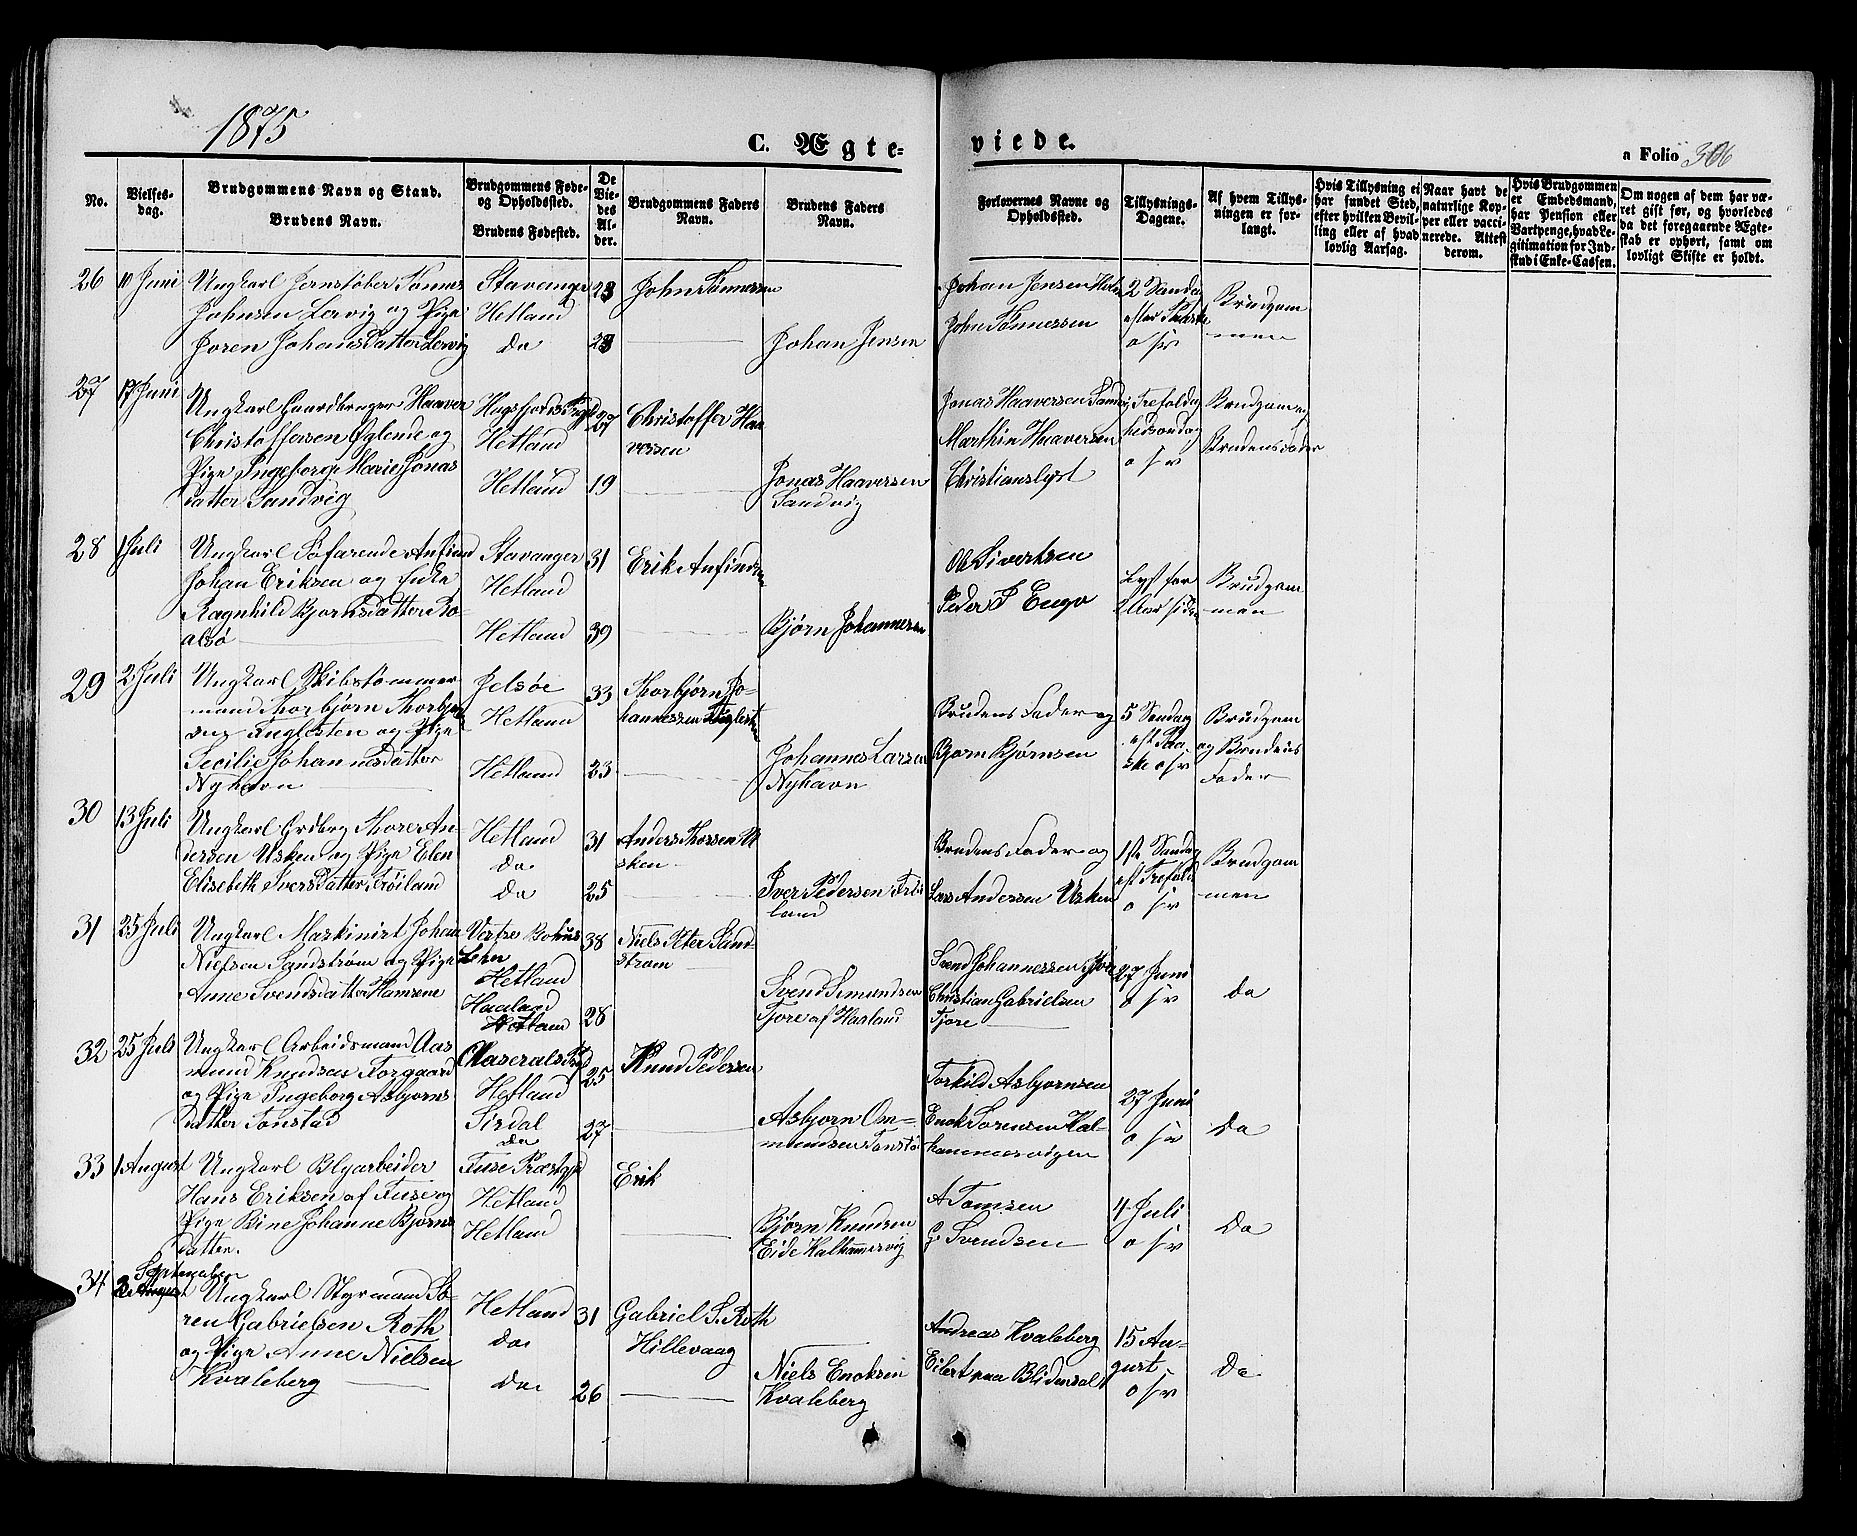 1875
C. Ægte=
viede.
a Folio 306
No.
Vielses-
dag.
Brudgommens Navn og Stand.
Brudens Navn.
Brudgommens Føde-
og Opholdssted.
Brudens Fødested.
De
Vie-
des
Al-
der.
Brudgommens Faders
Navn.
Brudens Faders
Navn.
Forlovernes Navne og
Opholdssted.
Tillysnings-
Dagene.
Af hvem Tillys-
ningen er for-
langt.
Hvis Tillysning ei
har fundet Sted,
efter hvilken Bevil-
ling eller af hvad
lovlig Aarsag.
Naar havt de
naturlige Kop-
per eller vacci-
nerede. Attest
derom.
Hvis Brudgommen
er Embedsmand,
har Pension eller
Vartpenge, hvad Le-
gitimation for Ind-
skud i Enke-Cassen.
Om nogen af dem har væ-
ret gift før, og hvorledes
da det foregaaende Ægte-
skab er ophørt, samt om
lovligt Skifte er holdt.
26
11 Juni
Ungkarl Jernstøber Tønnes
Johnsen Lervig og Pige
Joren Johans Datter Lervig
Stavanger
Hetland
do
28
John Tønnessen
Johan Jensen
Johan Jensen
John Tønnessen
2 Søndag
o s v
Brudgom
men
27
17 Juni
Ungkarl Gaardbruger Haaver
Christoffersen Øglende og
Pige Ingeborg Marie Jonas
datter Sandvig
Høgsfjords
Hetland
Hetland
27
19
Christoffer Haa
versen
Jonas Haaversen
Sandvig
Jonas Haaversen
Marthin Haaversen
Christianslyst
Trefoldig
hedsøndag
o s v
Brudgom og
Brudens Fader
28
1 Juli
Ungkarl Søfarende Anfind
Johan Eriksen og Enke
Ragnhild Bjørnsdatter Ro-
alsø
Stavanger
Hetland
Hetland
31
39
Erik Anfindsen
Bjørn Johannesen
Ole Sivertsen
Peder P Engø
Lyst for
Brudgom
men
29
2 Juli
Ungkarl Skibstømmer
mand Thorbjørn Thorbjørn
sen Fuglesten og Pige
Secilie Johannesdatter
Nyhavn
Jelsøe
Hetland
Hetland
33
23
Thorbjørn Jo-
hannessen
Johannes Larsen
Nyhavn
Brudens Fader og
Bjørn Bjørnsen
5 Søndag
eft Paa-
ske o s v
Brudgom
og Brudens
Fader
30
13 Juli
Ungkarl Grdbrg Thore An-
dersen Usken og Pige Elen
Elisebeth Ivers Datter Frøiland
Hetland
do
do
31
25
Anders Thorsen U
sken
Iver Pedersen Frøi
land
Brudens Fader og
Lars Andersen Usken
1ste Søndag
eft Trefold
o s v
Brudgom
men
31
25 Juli
Ungkarl Maskinist Johan
Nielsen Sandstrøm og Pige
Anne Svendsdatter Hamrene
Bohus
Lehn
Hetland
Haaland
Hetland
38
28
Niels Peter Sand-
strøm
Svend Simundsen
Tjore af Haaland
Svend Johannessen
Christian Gabrielsen
Tjore
27 Juni
o s v
do
32
25 Juli
Ungkarl Arbeidsmand Aas
mund Knudsen Torgaard
og Pige Ingeborg Asbjørns
datter Tonstad
Hetland
Sirdal
do
25
27
Knud Pedersen
Asbjørn Om-
mundsen Tonsta
Torkild Asbjørnsen
Enok Sørensen Kal-
hammersvigen
27 Juni
o s v
do
33
1 August
Ungkarl Blyarbeider
Hans Eriksen af Fuse og
Pige Bine Johanne Bjørns
datter.
Fuse Præstgjd
Hetland
Hetland
Erik
Bjørn Knudsen
Eide Kalhammervig
A Tomsen
G Svendsen
4 Juli
o s v
do
34
September
2 August
Ungkarl Styrmand Sø-
ren Gabrielsen Roth
og Pige Anne Nielsen
Kvaleberg
Hetland
do
do
31
26
Gabriel S. Roth
Hillevaag
Niels Enoksen
Kvaleberg
Andreas Kvaleberg
Eilert paa Blidensol
15 Au-
gust
o s v
do